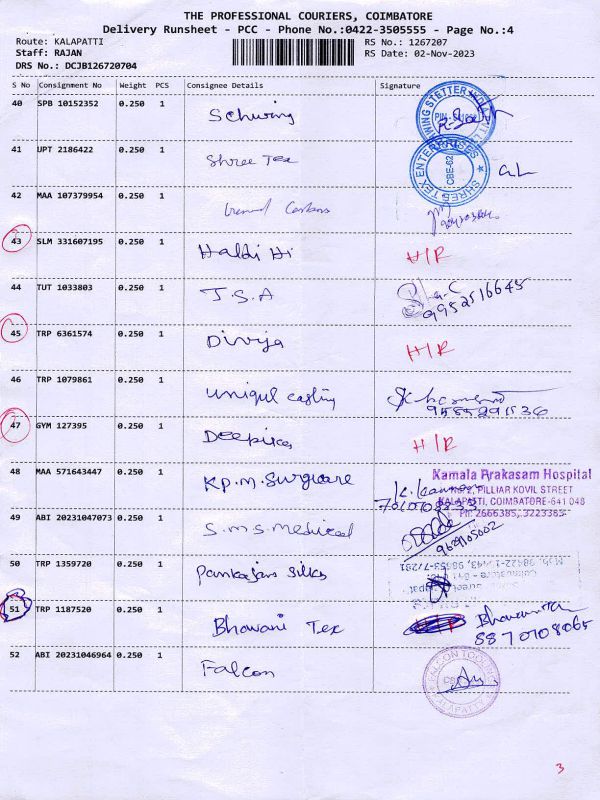 THE PROFESSIONAL COURIERS, COIMBATORE
Delivery Runsheet - PCC - Phone No.:0422-3505555 - Page No.:4
Route: KALAPATTI
Staff: RAJAN
DRS No.: DCJB126720704
RS No.: 1267207
RS Date: 02-Nov-2023
S No Consignment No Weight PCS Consignee Details Signature
40 SPB 10152352 0.250 1 Schwing
41 UPT 2186422 0.250 1 Shree Tex
SHREE TEX ENTERPRISES CBE-62
42 MAA 107379954 0.250 1
43 SLM 331607195 0.250 1 Haldi Hi H/R
44 TUT 1033803 0.250 1 J.S.A 9952516645
45 TRP 6361574 0.250 1 Divija H/R
46 TRP 1079861 0.250 1 Uniqul casting 9585291536
47 GYM 127395 0.250 1 Deepika H/R
48 MAA 571643447 0.250 1 KP.M. Surgicare
Kamala Prakasam Hospital
PILLIAR KOVIL STREET
KALAPATTI, COIMBATORE-641 048
Ph: 2666385, 3223383
49 ABI 20231047073 0.250 1 S.M.S. Medical 9629105002
50 TRP 1359720 0.250 1 Pankajam Silks
51 TRP 1187520 0.250 1 Bhavani Tex 8870108065
52 ABI 20231046964 0.250 1 Falcon
3